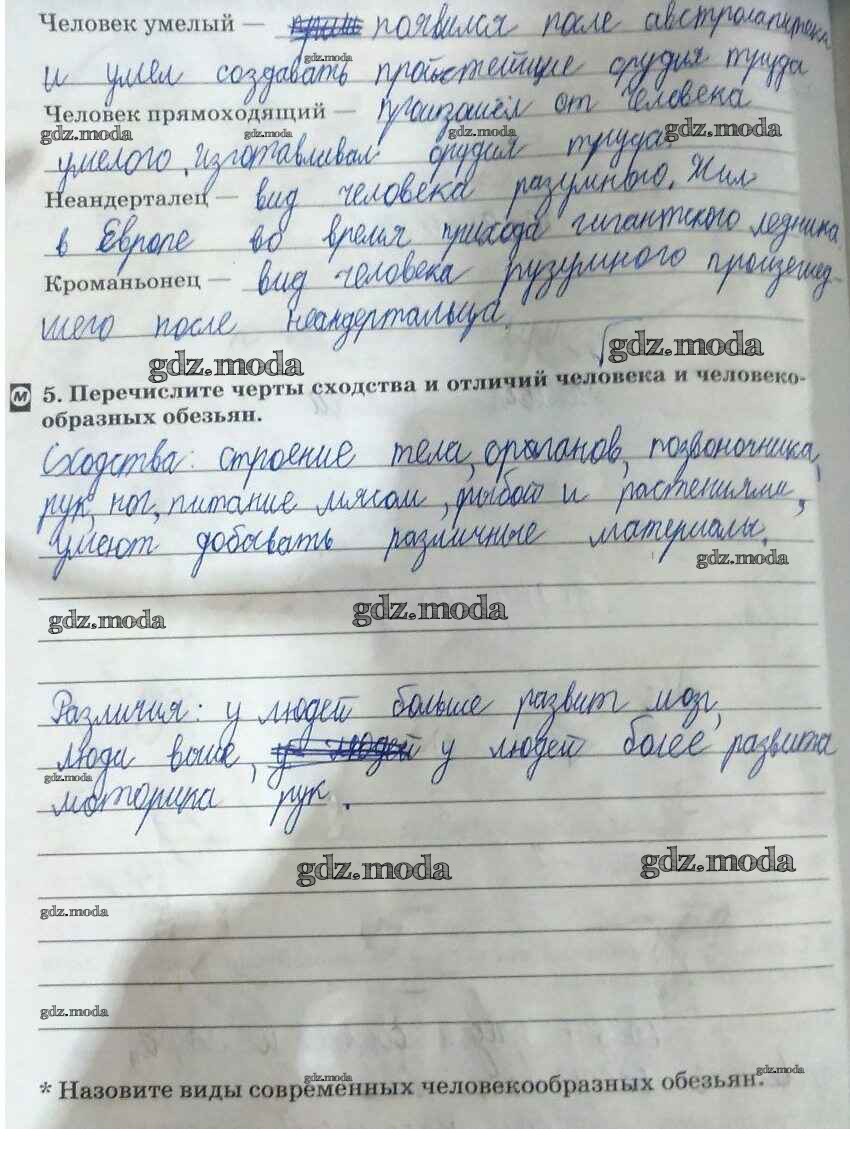 Человек умелый — появился после австролапитека
gdz.moda
и умел создавать простейшие орудия труда
Человек прямоходящий — произошёл от человека
gdz.moda gdz.moda gdz.moda gdz.moda
умелого, изготавливал орудия труда.
Неандерталец — вид человека разумного. Жил
в Европе во время прихода гигантского ледника
Кроманьонец — вид человека рузумного произешед-
шего после неандертальца.
gdz.moda gdz.moda
м 5. Перечислите черты сходства и отличий человека и человеко-
образных обезьян.
Сходства: строение тела, органов, позвоночника,
рук, ног, питание мясом, рыбой и растениями,
умеют добывать различные материалы.
gdz.moda
gdz.moda gdz.moda
Различия: у людей больше развит мозг,
люди выше, у людей более развита
gdz.moda
моторика рук.
gdz.moda gdz.moda
gdz.moda
gdz.moda
gdz.moda gdz.moda
* Назовите виды современных человекообразных обезьян.